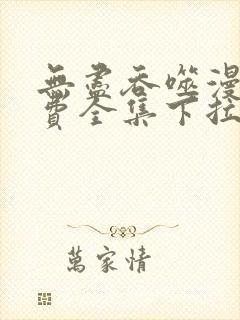 無盡吞噬漫
費全集下拉
萬家情